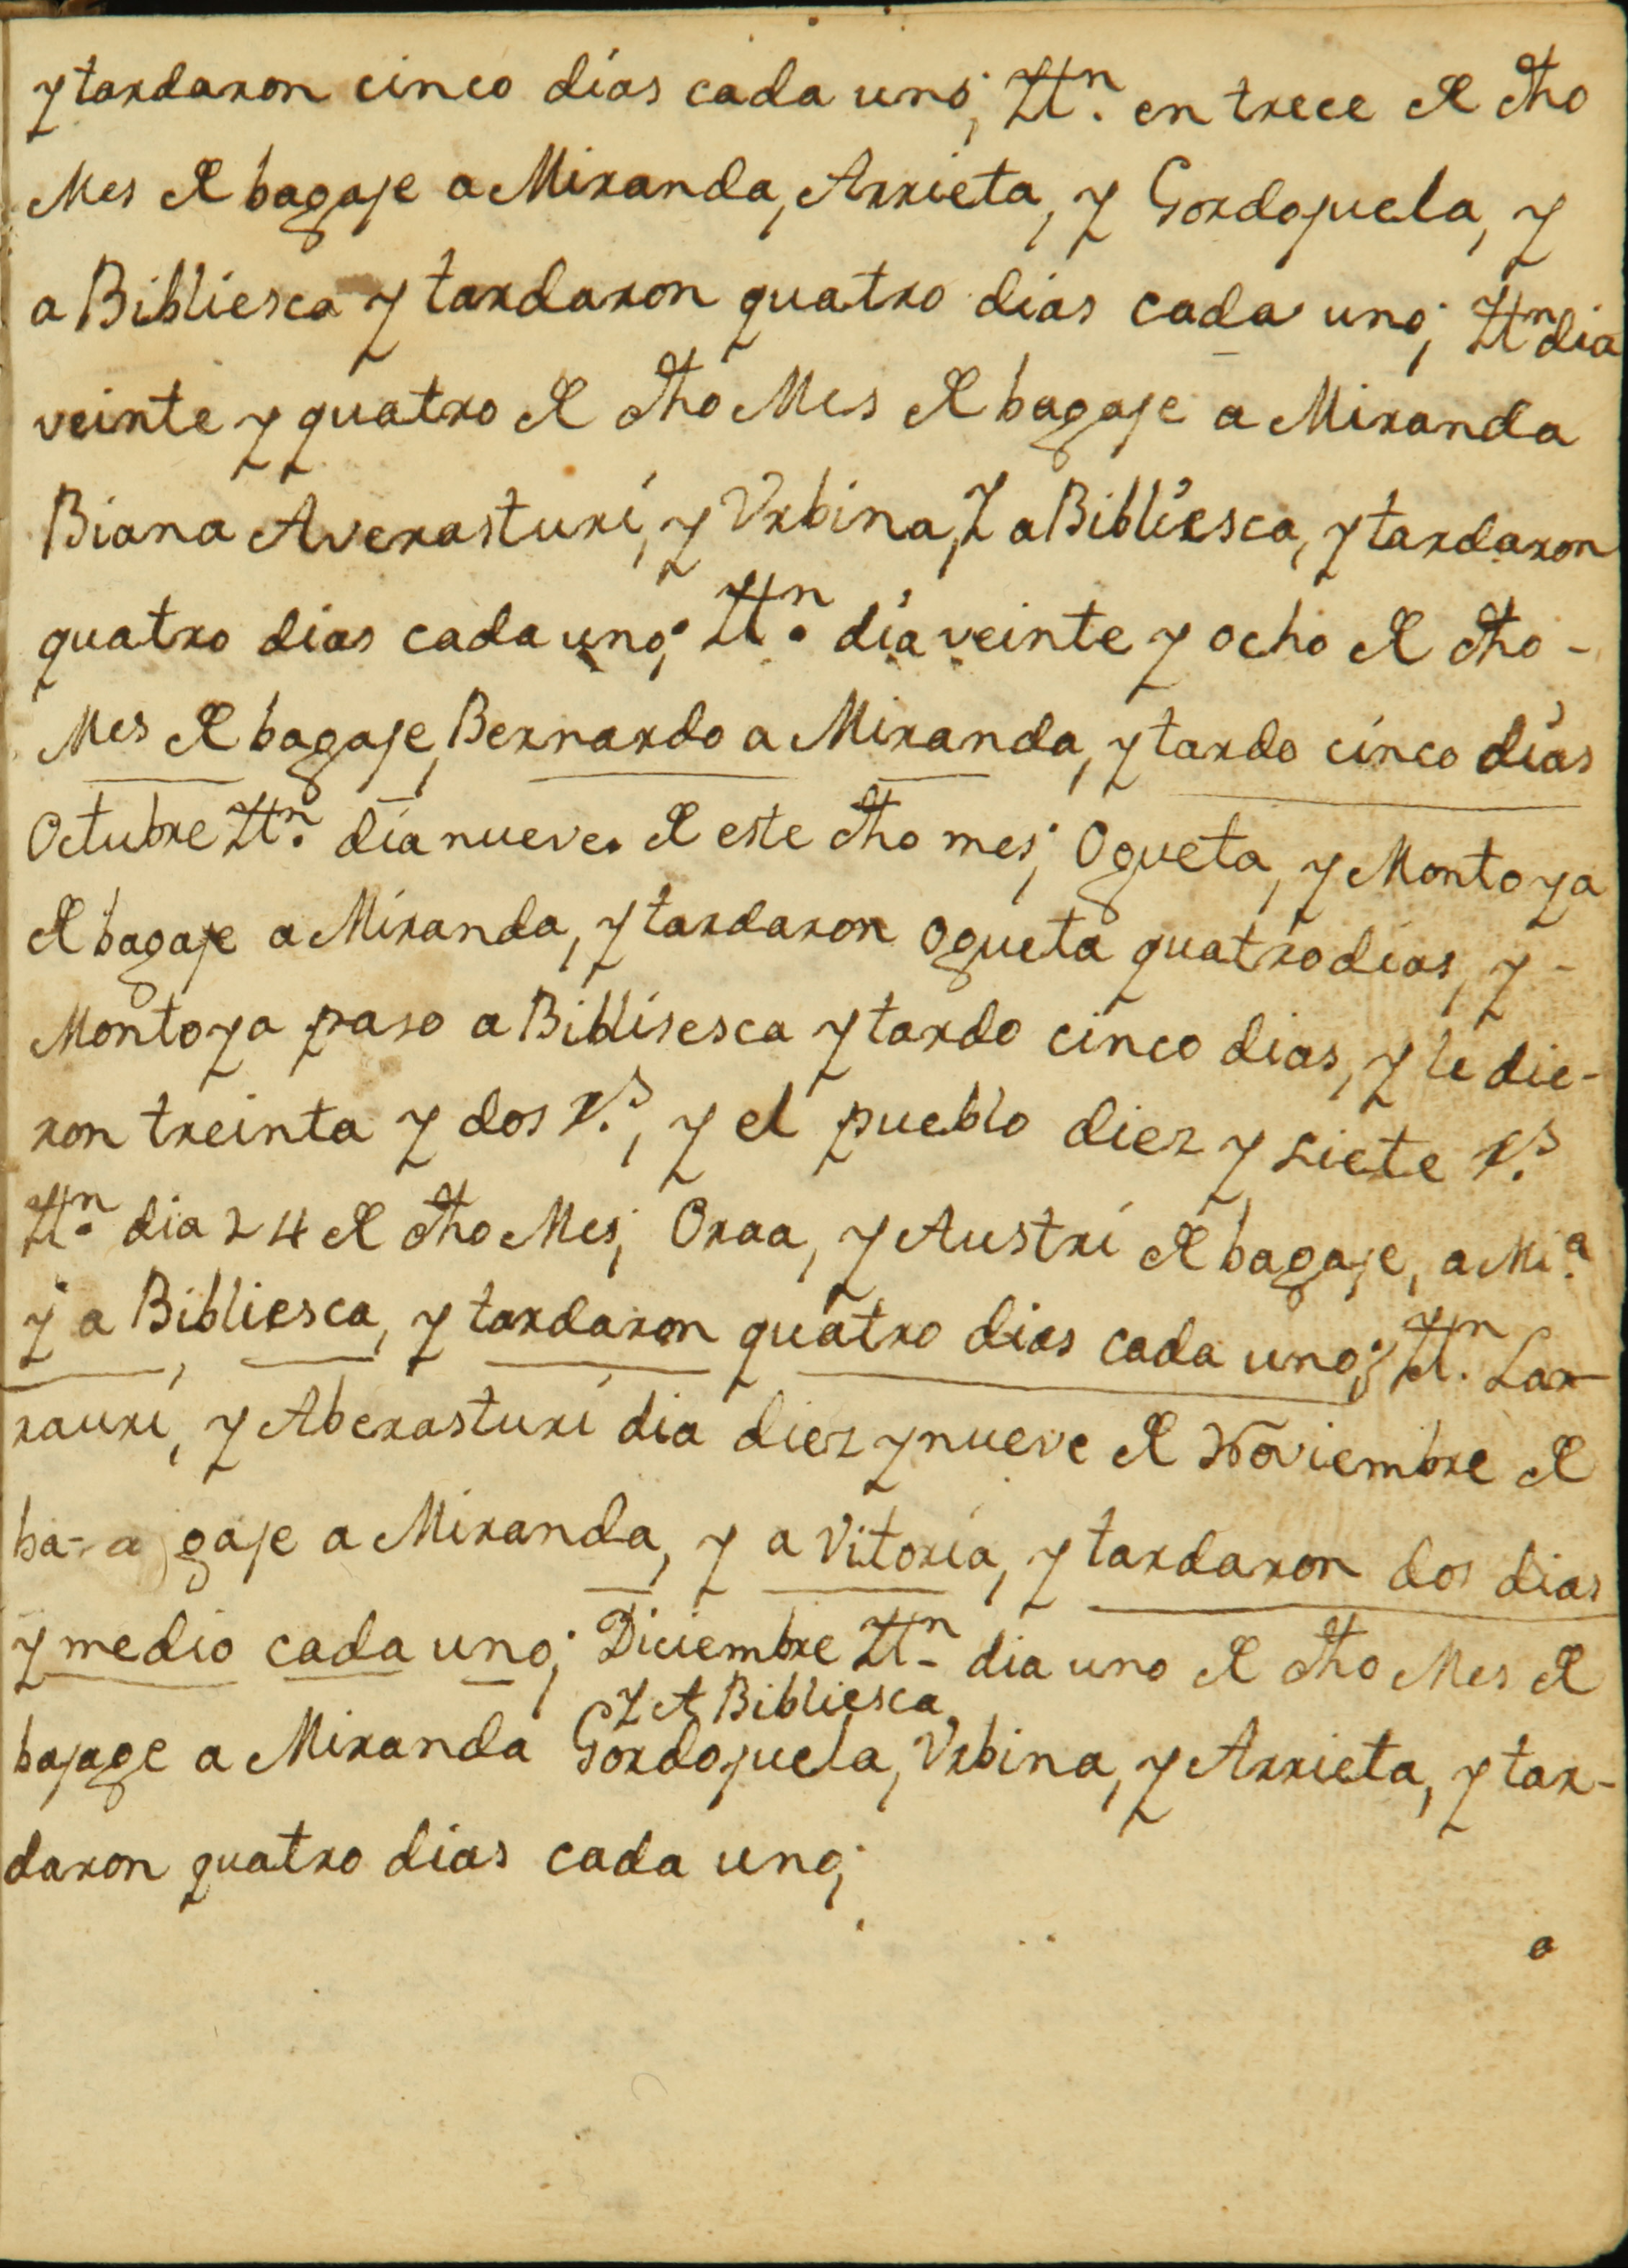 y tardaron cinco días cada uno; Ittn. en trece de dho
Mes de bagaje a Miranda, Arrieta, y Gordojuela, y
a Bibliesca y tardaron quatro dias cada uno; Ittn dia
veinte y quatro de dho Mes de bagaje a Miranda
Biana Averasturi, y Vrbina, Y a Bibliesca, y tardaron
quatro dias cada uno; Ittn. día veinte y ocho de dho -
Mes de bagaje, Bernardo a Miranda, y tardo cinco días
Octubre Ittn. día nueve. de este dho mes; Ogueta, y Montoya
de bagaje a Miranda, y tardaron Ogueta quatro dias, y -
Montoya paso a Biblisesca y tardo cinco dias, y le die-
ron treinta y dos rs., y el pueblo diez y siete rs.
Ittn. dia 24 de dho Mes; Oraa, y Austri de bagaje, a Mia.
y a Bibliesca, y tardaron quatro dias cada uno; Ittn. Lar-
rauri, y Aberasturi dia diez y nueve de Noviembre de
ba-a gaje a Miranda, y a Vitoria, y tardaron dos dias
y medio cada uno; Diciembre Ittn- dia uno de dho Mes de
Y A Bibliesca
bajage a Miranda Gordojuela, Vrbina, y Arrieta, y tar-
daron quatro dias cada uno;